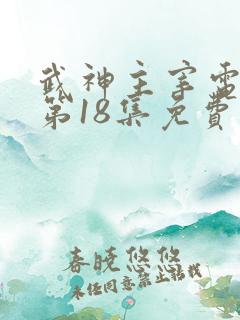 武神主宰雷
第18集免費
春晓悠悠
未任同意禁止转载